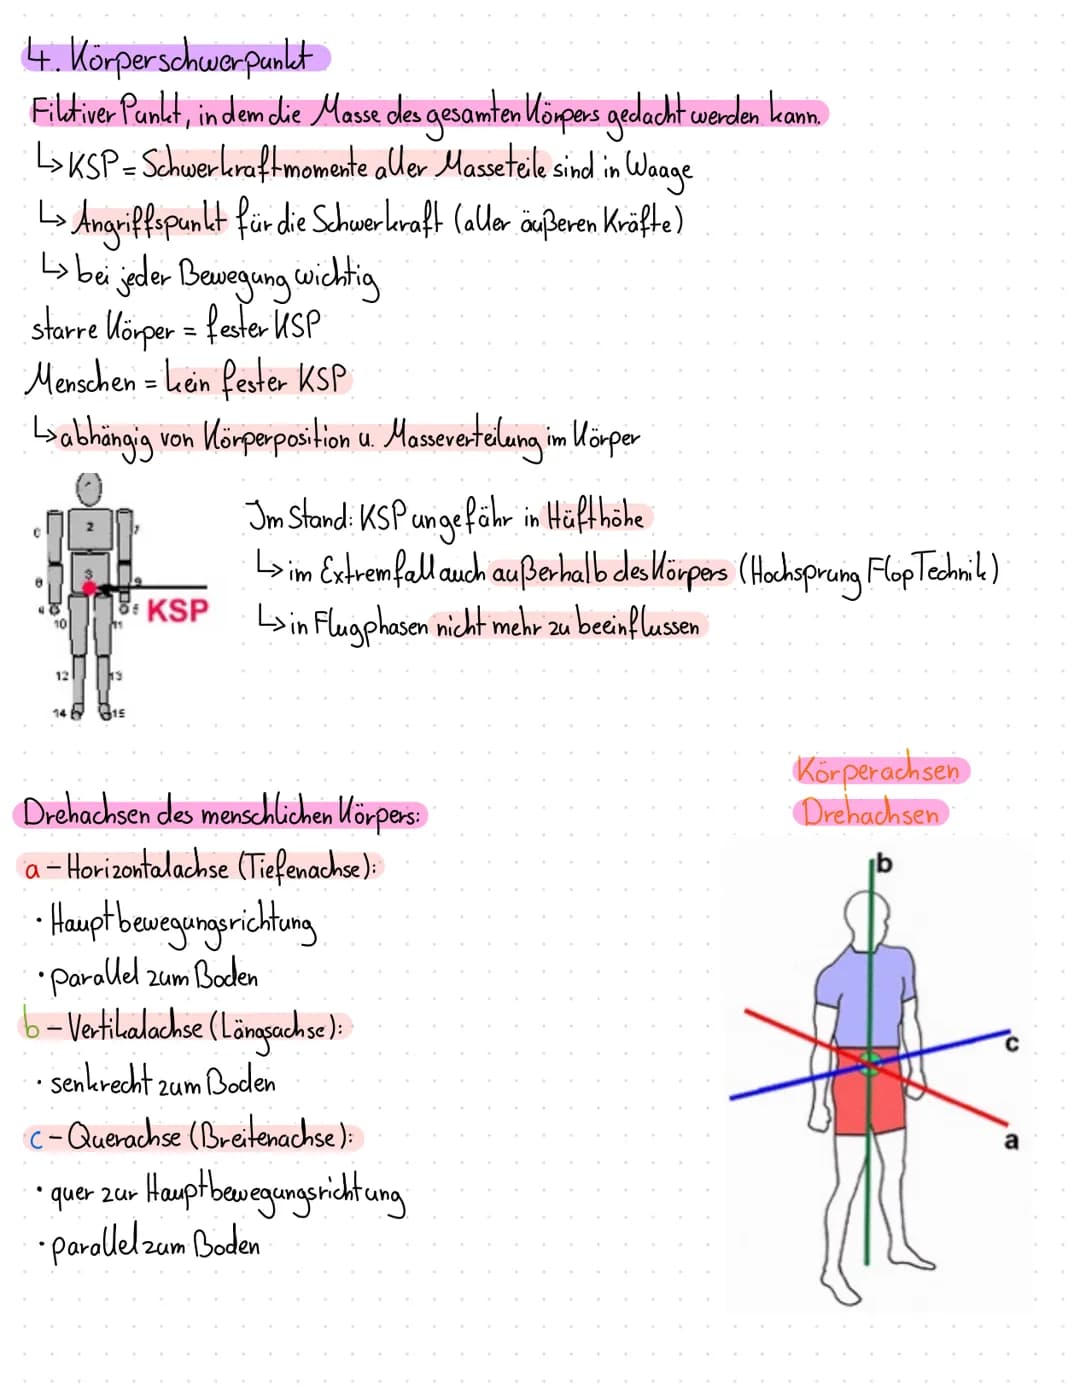 4. Körperschwerpunkt
Fiktiver Punkt, in dem die Masse des gesamten Körpers gedacht werden kann.
↳ KSP = Schwerkraftmomente aller Masseteile sind in Waage
↳ Angriffspunkt für die Schwerkraft (aller äußeren Kräfte)
↳ bei jeder Bewegung wichtig
starre Körper = fester KSP
Menschen = kein fester KSP
↳ abhängig von Körperposition u. Masseverteilung im Körper
2
3
KSP
10
11
12
13
14
15
Im Stand: KSP ungefähr in Hüfthöhe
↳ im Extremfall auch außerhalb des Körpers (Hochsprung Flop Technik)
↳ in Flugphasen nicht mehr zu beeinflussen
Körperachsen
Drehachsen
Drehachsen des menschlichen Körpers:
a - Horizontalachse (Tiefenachse):
· Hauptbewegungsrichtung
· parallel zum Boden
b - Vertikalachse (Längsachse):
· senkrecht zum Boden
c - Querachse (Breitenachse):
· quer zur Hauptbewegungsrichtung
· parallel zum Boden
b
c
a